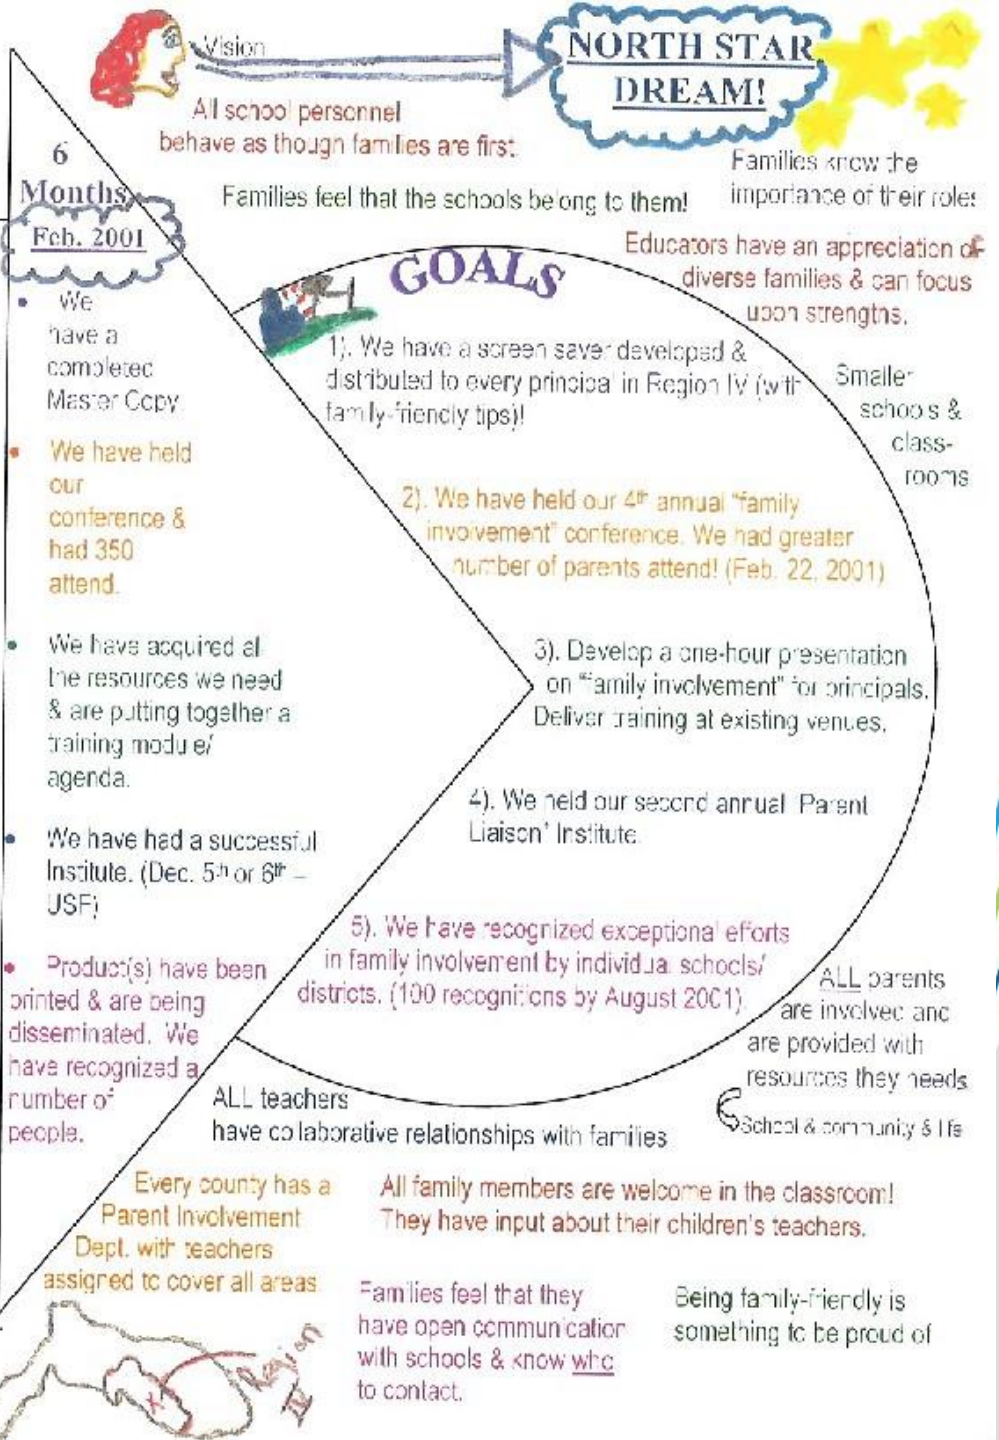 Vision
NORTH STAR
DREAM!
All school personnel
behave as though families are first.
Families know the
importance of their roles
Families feel that the schools belong to them!
Educators have an appreciation of
diverse families & can focus
upon strengths.
Smaller
schools &
class-
rooms
6
Months
Feb. 2001
• We
have a
completed
Master Copy
• We have held
our
conference &
had 350
attend.
• We have acquired all
the resources we need
& are putting together a
training module/
agenda.
• We have had a successful
Institute. (Dec. 5th or 6th –
USF)
• Product(s) have been
printed & are being
disseminated. We
have recognized a
number of
people.
GOALS
1). We have a screen saver developed &
distributed to every principal in Region IV (with
family-friendly tips)!
2). We have held our 4th annual "family
involvement" conference. We had greater
number of parents attend! (Feb. 22, 2001)
3). Develop a one-hour presentation
on "family involvement" for principals.
Deliver training at existing venues.
4). We held our second annual "Parent
Liaison" Institute.
5). We have recognized exceptional efforts
in family involvement by individual schools/
districts. (100 recognitions by August 2001).
ALL parents
are involved and
are provided with
resources they needs
School & community & life
ALL teachers
have collaborative relationships with families
Every county has a
Parent Involvement
Dept. with teachers
assigned to cover all areas
All family members are welcome in the classroom!
They have input about their children's teachers.
Families feel that they
have open communication
with schools & know who
to contact.
Being family-friendly is
something to be proud of
X
Region
IV